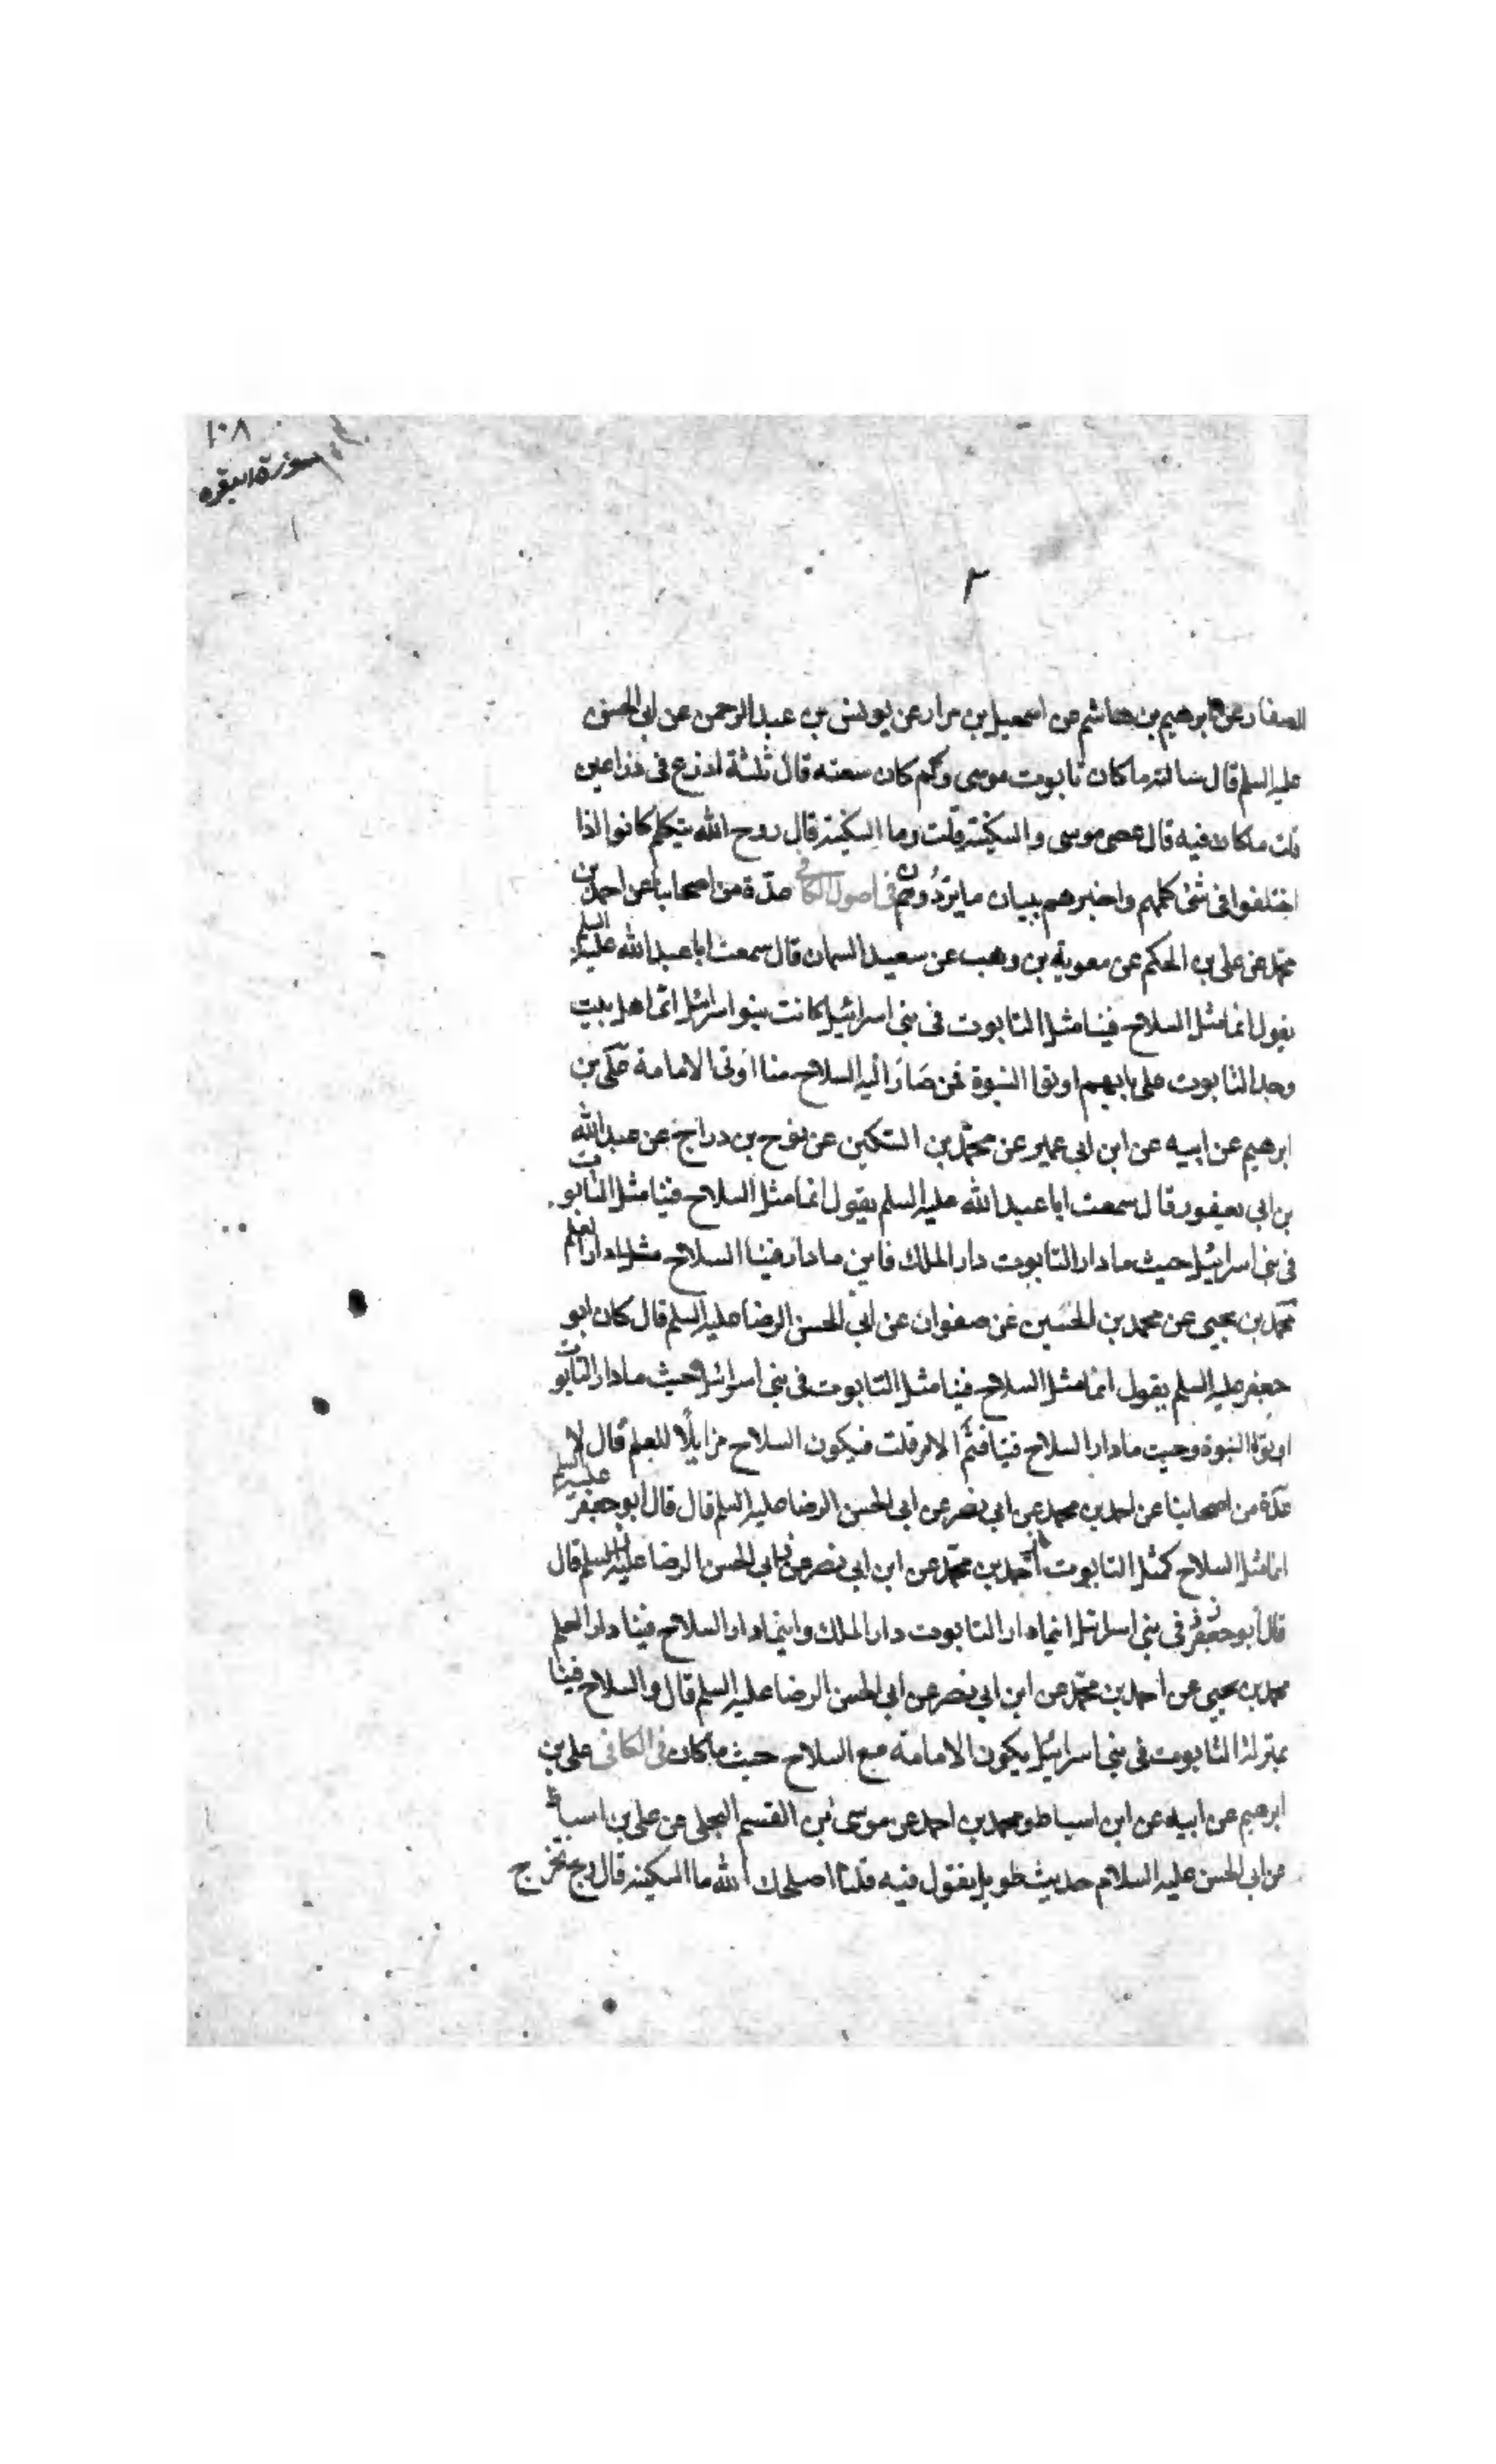 ١٠٨
سورة البقرة
٢
الصفار عن ابرهيم بن هاشم عن اسمعيل بن مرار عن يونس بن عبد الرحمن عن ابى الحسن
عليه السلم قال سالته ما كان تابوت موسى وكم كان سعته قال ثلثة اذرع فى ذراعين
قلت ما كان فيه قال عصى موسى والسكينة قلت وما السكينة قال روح الله يتكلم كانوا اذا
اختلفوا فى شئ كلمهم واخبرهم ببيان ما يريدون فى اصول الكافى عدّة من اصحابنا عن احمد بن
محمّد عن على بن الحكم عن معوية بن وهب عن سعيد السمان قال سمعت ابا عبد الله عليه السلم
يقول انما مثل السلاح فينا مثل التابوت فى بنى اسرائيل كانت بنو اسرائيل اىّ اهل بيت
وجد التابوت على بابهم اوتوا النبوة فمن صار اليه السلاح منا اوتى الامامة علىّ بن
ابرهيم عن ابيه عن ابن ابى عمير عن محمّد بن السّكين عن نوح بن دراج عن عبد الله
بن ابى يعفور قال سمعت ابا عبد الله عليه السلم يقول انما مثل السلاح فينا مثل التابوت
فى بنى اسرائيل حيث ما دار التابوت دار الملك فاين ما دار فينا السلاح دار العلم
محمّد بن يحيى عن محمد بن الحسين عن صفوان عن ابى الحسن الرضا عليه السلم قال كان ابو
جعفر عليه السلم يقول انما مثل السلاح فينا مثل التابوت فى بنى اسرائيل حيث ما دار التابوت
اوتوا النبوة وحيث ما دار السلاح فينا فثمّ الامر قلت فيكون السلاح مزايلًا للعلم قال لا
عدّة من اصحابنا عن احمد بن محمد عن ابى نصر عن ابى الحسن الرضا عليه السلم قال قال ابو جعفر عليه السلم
انما مثل السلاح كمثل التابوت احمد بن محمّد عن ابن ابى نصر عن ابى الحسن الرضا عليه السلم قال
قال ابو جعفر فى بنى اسرائيل اينما دار التابوت دار الملك واينما دار السلاح فينا دار العلم
محمد بن يحيى عن احمد بن محمّد عن ابن ابى نصر عن ابى الحسن الرضا عليه السلم قال والسلاح فينا
بمنزلة التابوت فى بنى اسرائيل يكون الامامة مع السلاح حيث ما كان فى الكافى على بن
ابرهيم عن ابيه عن ابن اسباط ومحمد بن احمد عن موسى بن القسم البجلى عن على بن اسباط
عن ابى الحسن عليه السلام حديث طويل يقول فيه قلنا اصلحك الله ما السكينة قال ريح تخرج